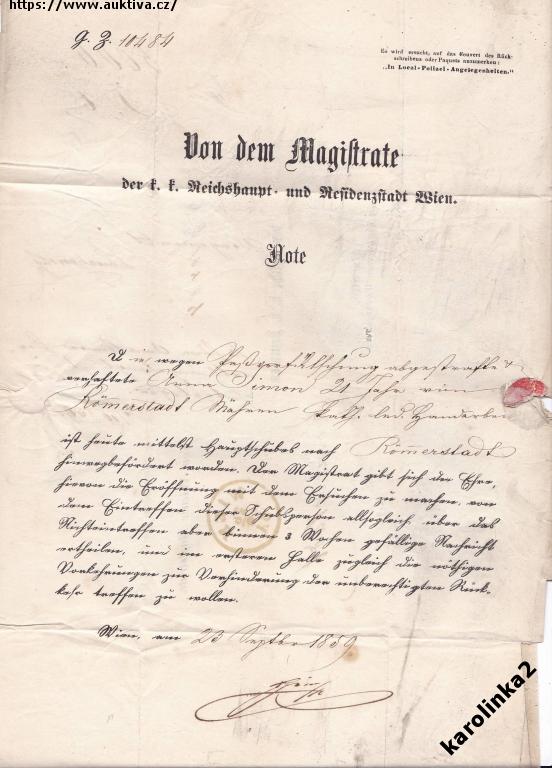 https://www.auktiva.cz/
G. Z. 10484
Es wird ersucht, auf das Couvert des Rück-
schreibens oder Paquets anzumerken:
„In Local-Polizei-Angelegenheiten."
Von dem Magistrate
der k. k. Reichshaupt- und Residenzstadt Wien.
Note
Die wegen Paßverfälschung abgestrafte
verhaftete Anna Simon 21 Jahr von
Römerstadt Mähren kath. led. Handarbei
ist heute mittelst Hauptschubes nach Römerstadt
hinwegbefördert worden. Der Magistrat gibt sich die Ehre,
hievon die Eröffnung mit dem Ersuchen zu machen, von
dem Eintreffen dieser Schubsperson allsogleich, über das
Nichteintreffen aber binnen 3 Wochen gefällige Nachricht
ertheilen, und im ersteren Falle zugleich die nöthigen
Vorkehrungen zur Verhinderung der unberechtigten Rück-
kehr treffen zu wollen.
Wien, am 23 Septber 1859
karolinka2